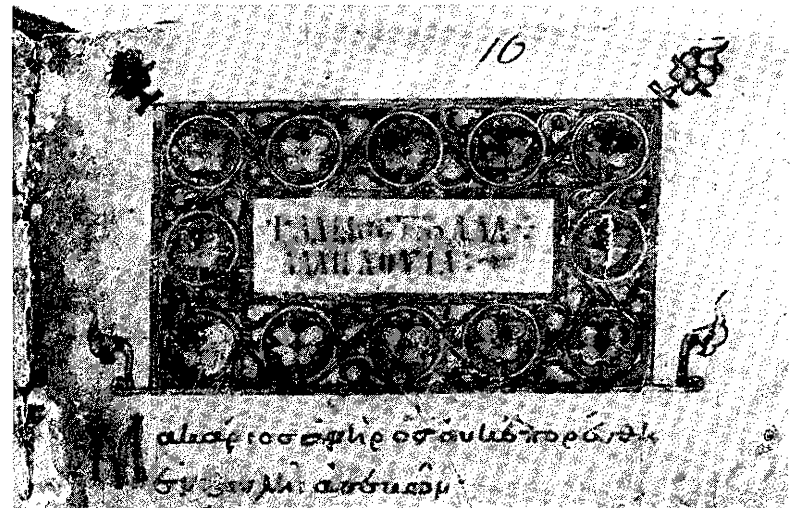 16
ΨΑΛΜΟΣ ΤΩ ΔΑΔ
ΑΛΛΗΛΟΥΙΑ
Μακάριος ἀνὴρ ὃς οὐκ ἐπορεύθη
ἐν βουλῇ ἀσεβῶν